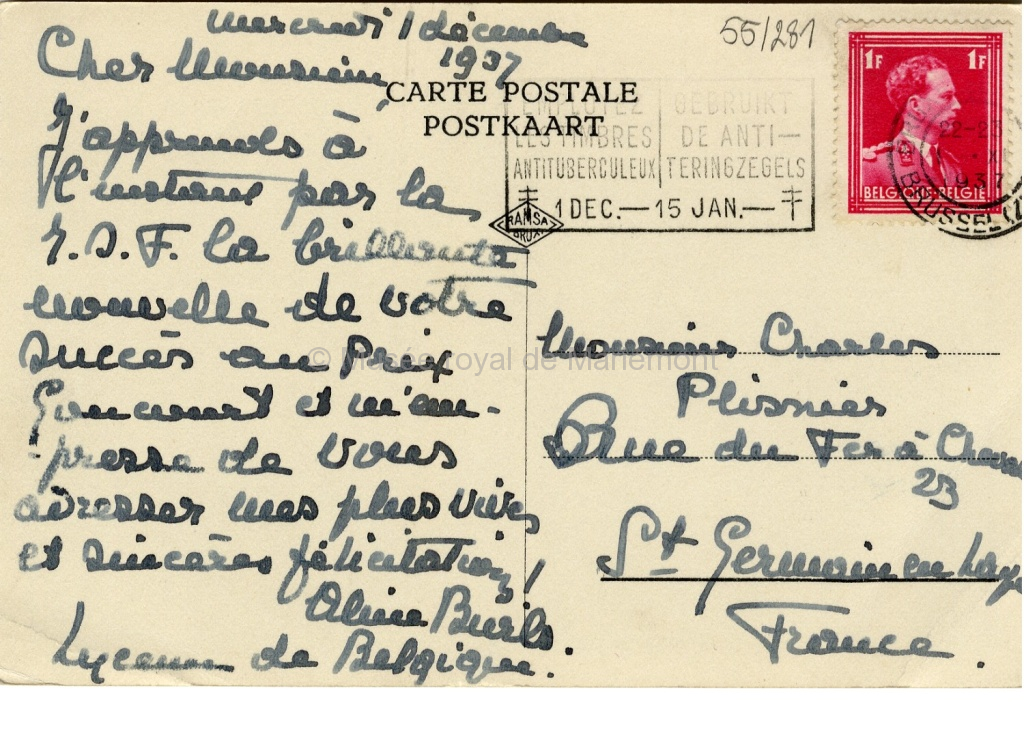 Mercredi 1 décembre
1937
55/281
Cher Monsieur,
CARTE POSTALE
POSTKAART
J'apprends à
l'instant par la
T.S.F. la brillante
nouvelle de votre
succès au Prix
Goncourt et m'em-
presse de vous
adresser mes plus vives
et sincères félicitations!
Aline
Lyceum de Belgique.
EMPLOYEZ
LES TIMBRES
ANTITUBERCULEUX
GEBRUIKT
DE ANTI—
TERINGZEGELS
1 DEC.—15 JAN.—
RAMSA
BRUX.
1F 1F
BELGIQUE-BELGIË
1937
BRUSSEL
Monsieur Charles
Plisnier
Rue du Fer à Cheval
23
St Germain en Laye
France.
© Musée royal de Mariemont